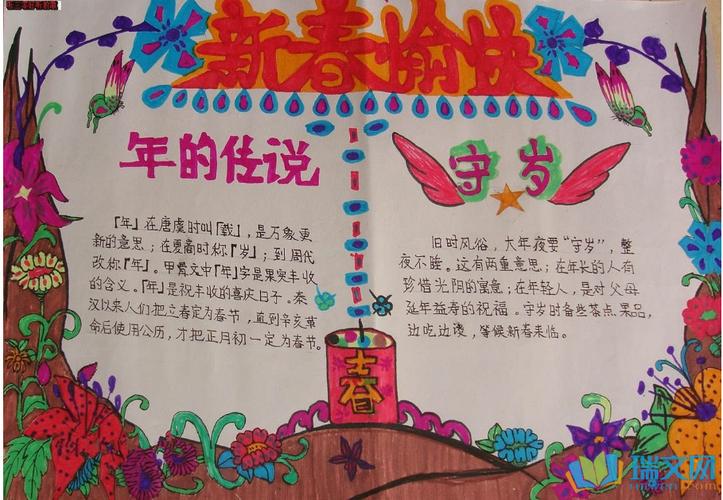 新春愉快
年的传说
「年」在唐虞时叫「载」，是万象更
新的意思；在夏商时称「岁」；到周代
改称「年」。甲骨文中「年」字是果实丰收
的含义。「年」是祝丰收的喜庆日子。秦
汉以来人们把立春定为春节，直到辛亥革
命后使用公历，才把正月初一定为春节。
守岁
旧时风俗，大年夜要“守岁”，整
夜不睡。这有两重意思；在年长的人有
珍惜光阴的寓意；在年轻人，是对父母
延年益寿的祝福。守岁时备些茶点果品，
边吃边谈，等候新春来临。
春
瑞文网